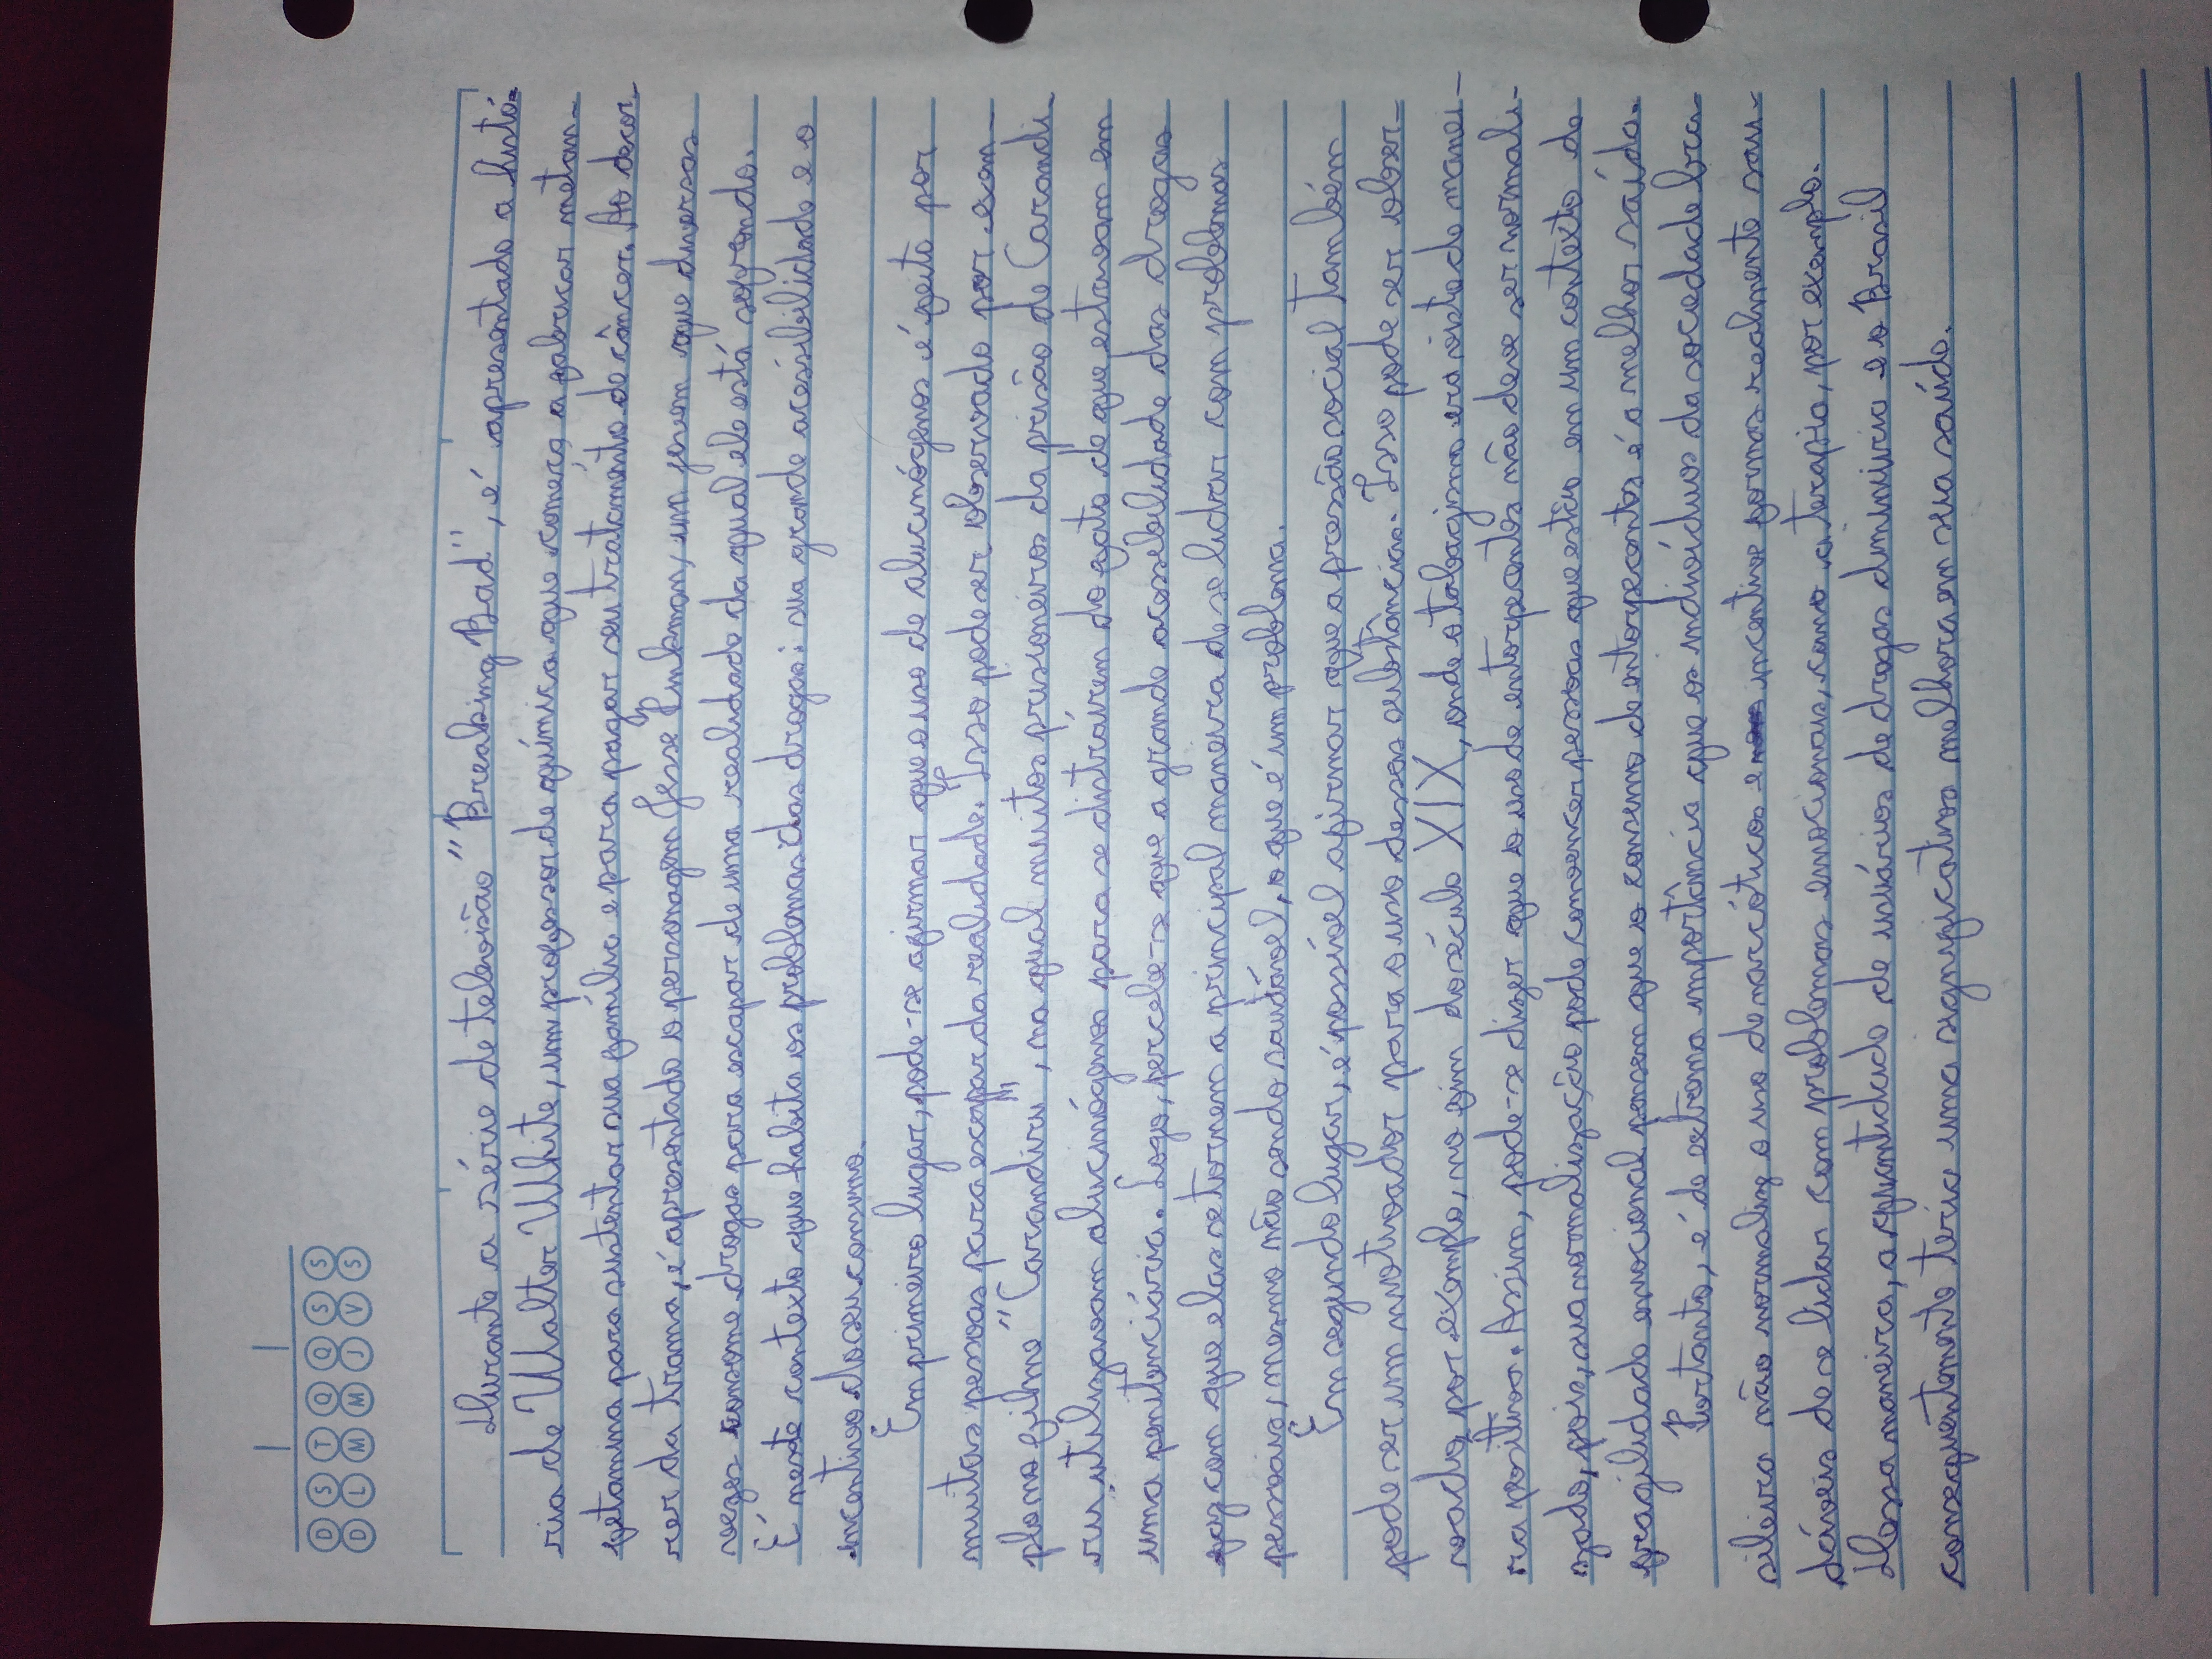 D S T Q Q S S
D L M M J V S
Durante a série de televisão "Breaking Bad", é apresentado a histó-
ria de Walter White, um professor de química que começa a fabricar metan-
fetamina para sustentar sua família e para pagar seu tratamento de câncer. Ao decor-
rer da trama, é apresentado o personagem Jesse Pinkman, um jovem que diversas
vezes consome drogas para escapar de uma realidade da qual ele está sofrendo.
É neste contexto que habita os problemas das drogas: sua grande acessibilidade e o
incentivo do seu consumo.
Em primeiro lugar, pode-se afirmar que o uso de alucinógenos é feito por
muitas pessoas para escapar da realidade. Isso pode ser observado por exem-
plo no filme "Carandiru", na qual muitos prisioneiros da prisão de Carandi-
ru utilizavam alucinógenos para se distraírem do fato de que estavam em
uma penitenciária. Logo, percebe-se que a grande acessebilidade das drogas
faz com que elas se tornem a principal maneira de se lidar com problemas
pessoais, mesmo não sendo saudável, o que é um problema.
Em segundo lugar, é possível afirmar que a pressão social também
pode ser um motivador para o uso dessas substâncias. Isso pode ser obser-
vado, por exemplo, no fim do século XIX, onde o tabagismo era visto de manei-
ra positiva. Assim, pode-se dizer que o uso de entorpecentes não deve ser normali-
zado, pois, sua normalização pode convencer pessoas que estão em um contexto de
fragilidade emocional pensem que o consumo de entorpecentes é a melhor saída.
Portanto, é de extrema importância que os indivíduos da sociedade bra-
sileira não normaliz o uso de narcóticos e incentive formas realmente sau-
dáveis de se lidar com problemas emocionais, como a terapia, por exemplo.
Dessa maneira, a quantidade de usuários de drogas diminuiria e o Brasil
consequentemente teria uma significativa melhora em sua saúde.